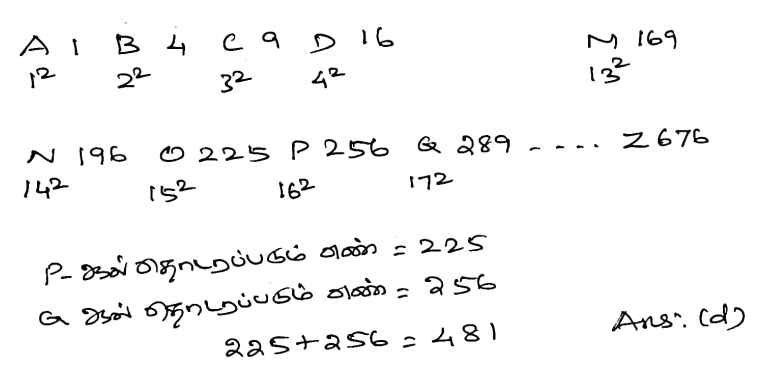 A 1 B 4 C 9 D 16 M 169
1² 2² 3² 4² 13²
N 196 O 225 P 256 Q 289 ---- Z 676
14² 15² 16² 172
P- ஆல் தொடரப்படும் எண் = 225
Q ஆல் தொடரப்படும் எண் = 256
225+256 = 481 Ans: (d)